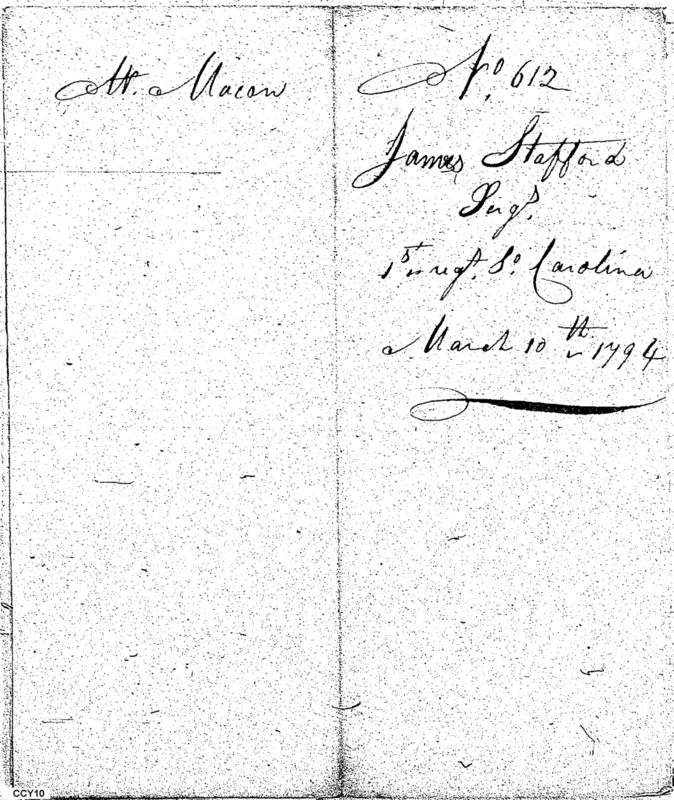 Mr. Macon
No. 612
James Stafford
Sergt.
1st regt. So. Carolina
March 10th 1794
CCY10